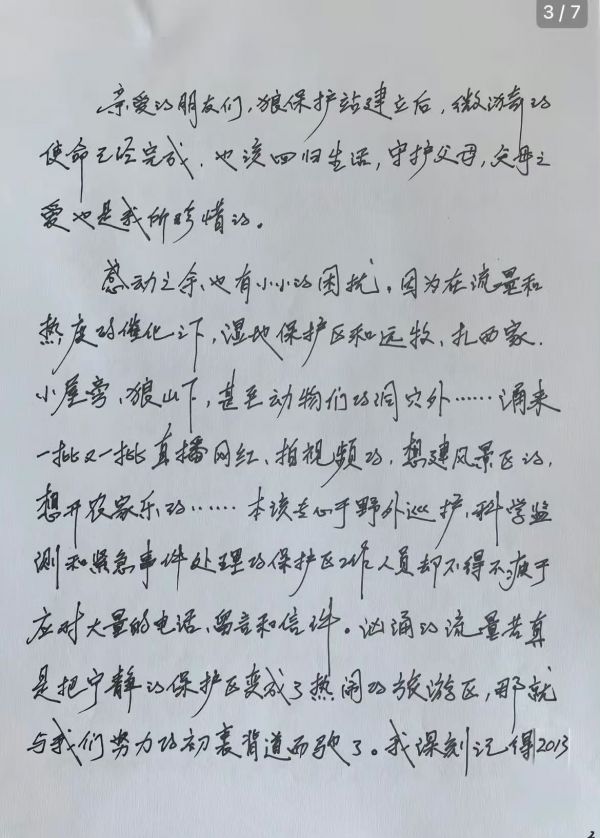 3/7
亲爱的朋友们，狼保护站建立后，微漪的
使命已经完成，也该回归生活，守护父母，父母之
爱也是我所珍惜的。
感动之余，也有小小的困扰。因为在流量和
热度的催化之下，湿地保护区和远牧、扎西家、
小屋旁、狼山下，甚至动物们的洞穴外……涌来
一批又一批直播网红、拍视频的，想建风景区的，
想开农家乐的……本该专心于野外巡护，科学监
测和紧急事件处理的保护区工作人员却不得不疲于
应对大量的电话、留言和信件。汹涌的流量若真
是把宁静的保护区变成了热闹的旅游区，那就
与我们努力的初衷背道而驰了。我深刻记得2013